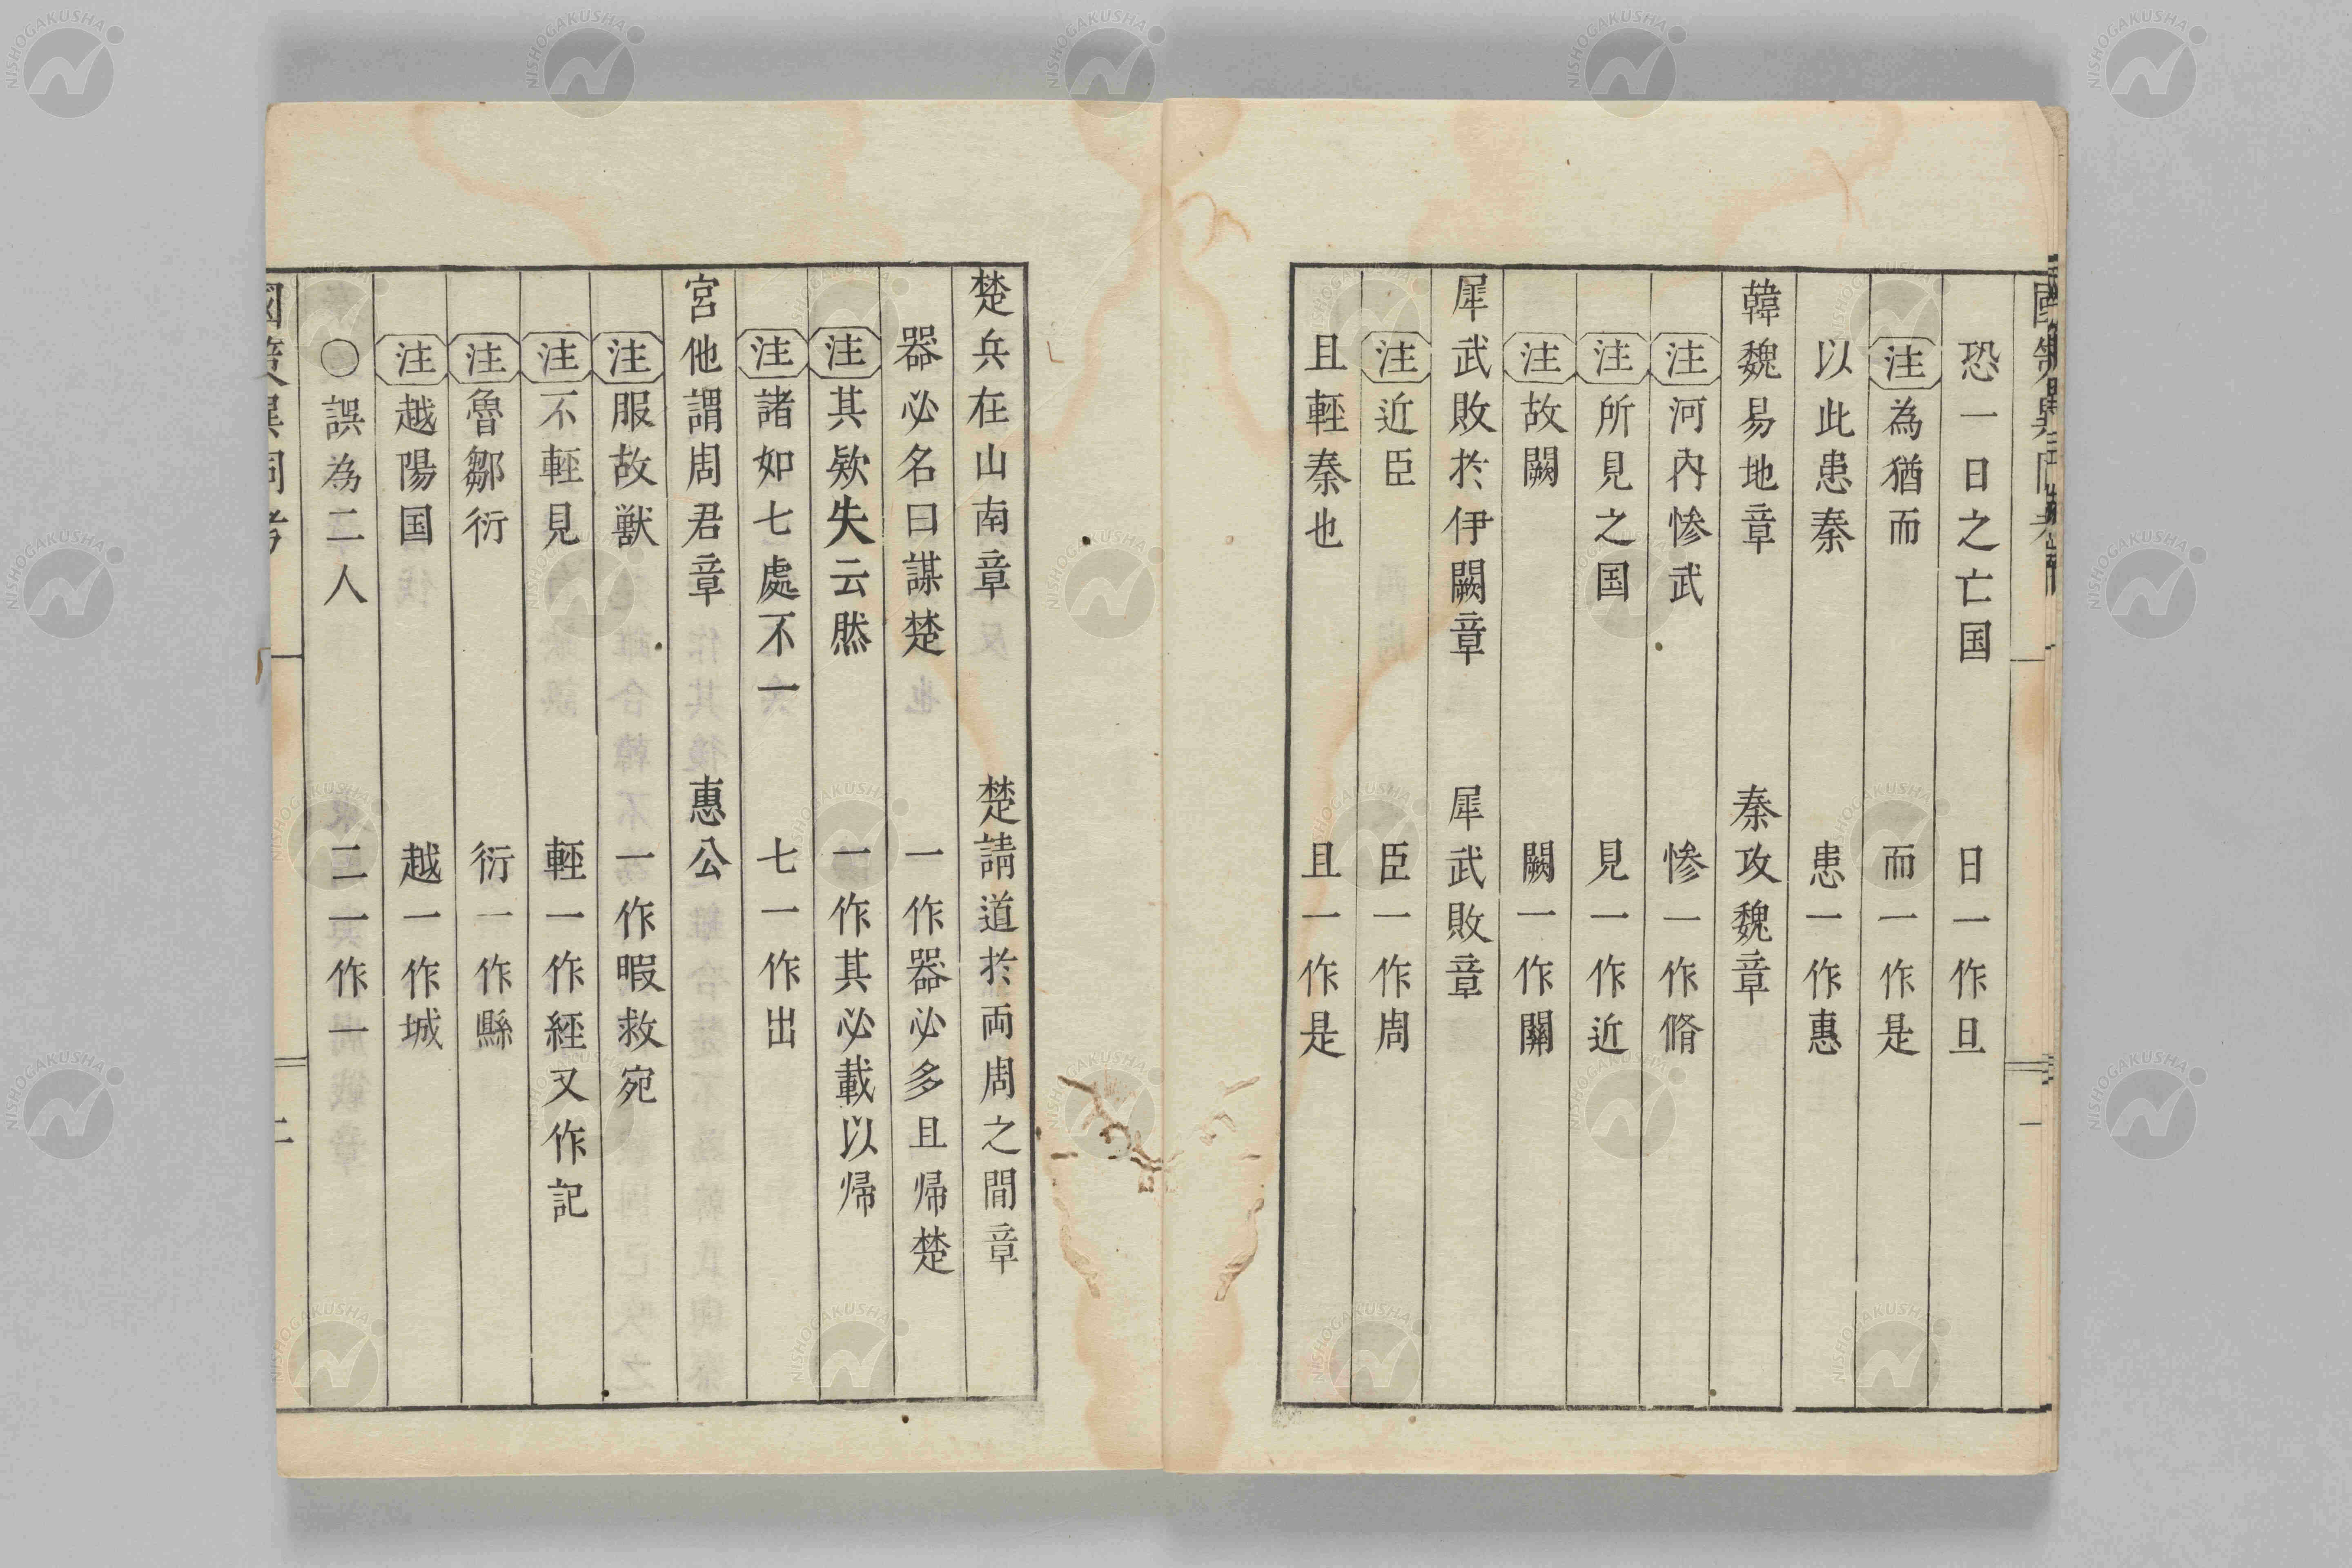 恐一日之亡国　日一作旦
注為猶而　而一作是
以此患秦　患一作惠
韓魏易地章　秦攻魏章
注河內惨武　惨一作脩
注所見之国　見一作近
注故闕　闕一作關
犀武敗於伊闕章　犀武敗章
注近臣　臣一作周
且輕秦也　且一作是
楚兵在山南章　楚請道於両周之間章
器必名曰謀楚　一作器必多且帰楚
注其欵失云然　一作其必載以帰
注諸如七處不一　七一作出
宮他謂周君章　惠公
注服故獣　一作暇救宛
注不輕見　輕一作経又作記
注魯鄒衍　衍一作縣
注越陽国　越一作城
○誤為二人　二一作一
國策異同考　二
NISHOGAKUSHA